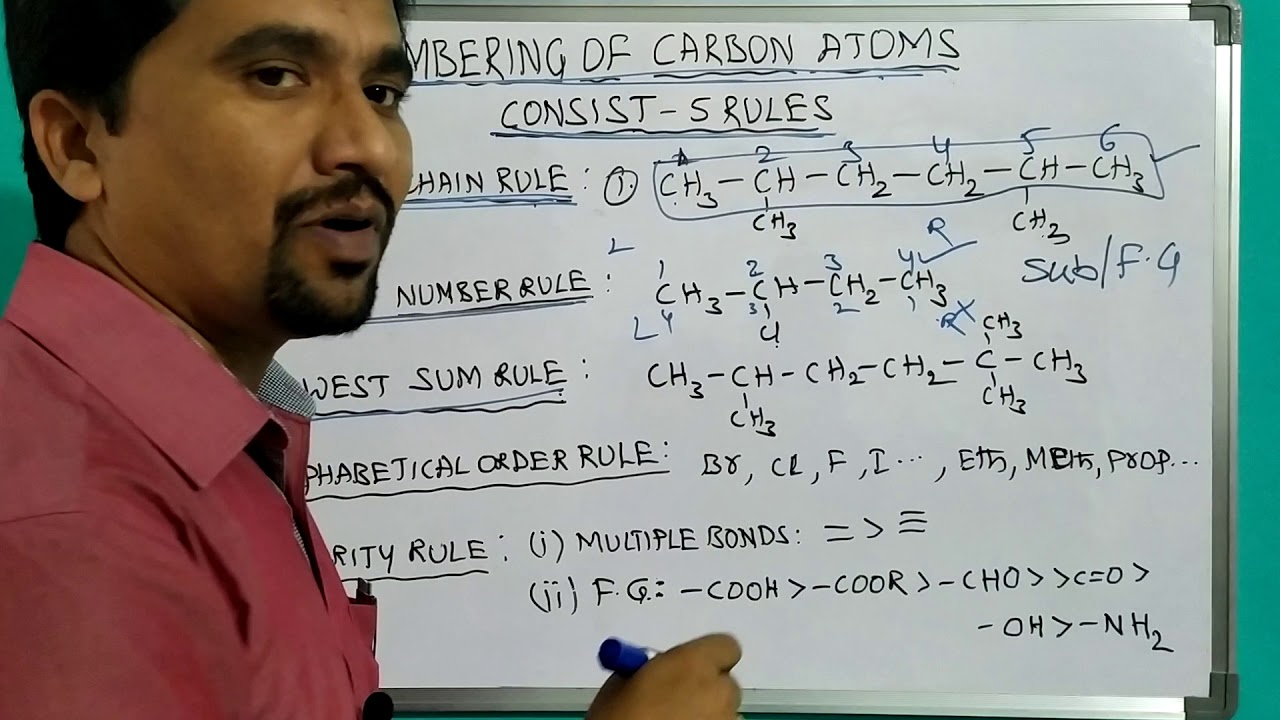 MBERING OF CARBON ATOMS
CONSIST - 5 RULES
HAIN RULE : ① CH3 - CH - CH2 - CH2 - CH - CH3
1 2 3 4 5 6
CH3 CH3
L R
Sub/F.G
NUMBER RULE : CH3 - CH - CH2 - CH3
1 2 3 4 ✓
L 4 3 2 1 R X
Cl
WEST SUM RULE : CH3 - CH - CH2 - CH2 - C - CH3
CH3
CH3 CH3
PHABETICAL ORDER RULE : Br, Cl, F, I ... , Eth, Meth, Prop...
RITY RULE : (i) MULTIPLE BONDS : = > ≡
(ii) F.G.: -COOH > -COOR > -CHO > >C=O >
-OH > -NH2